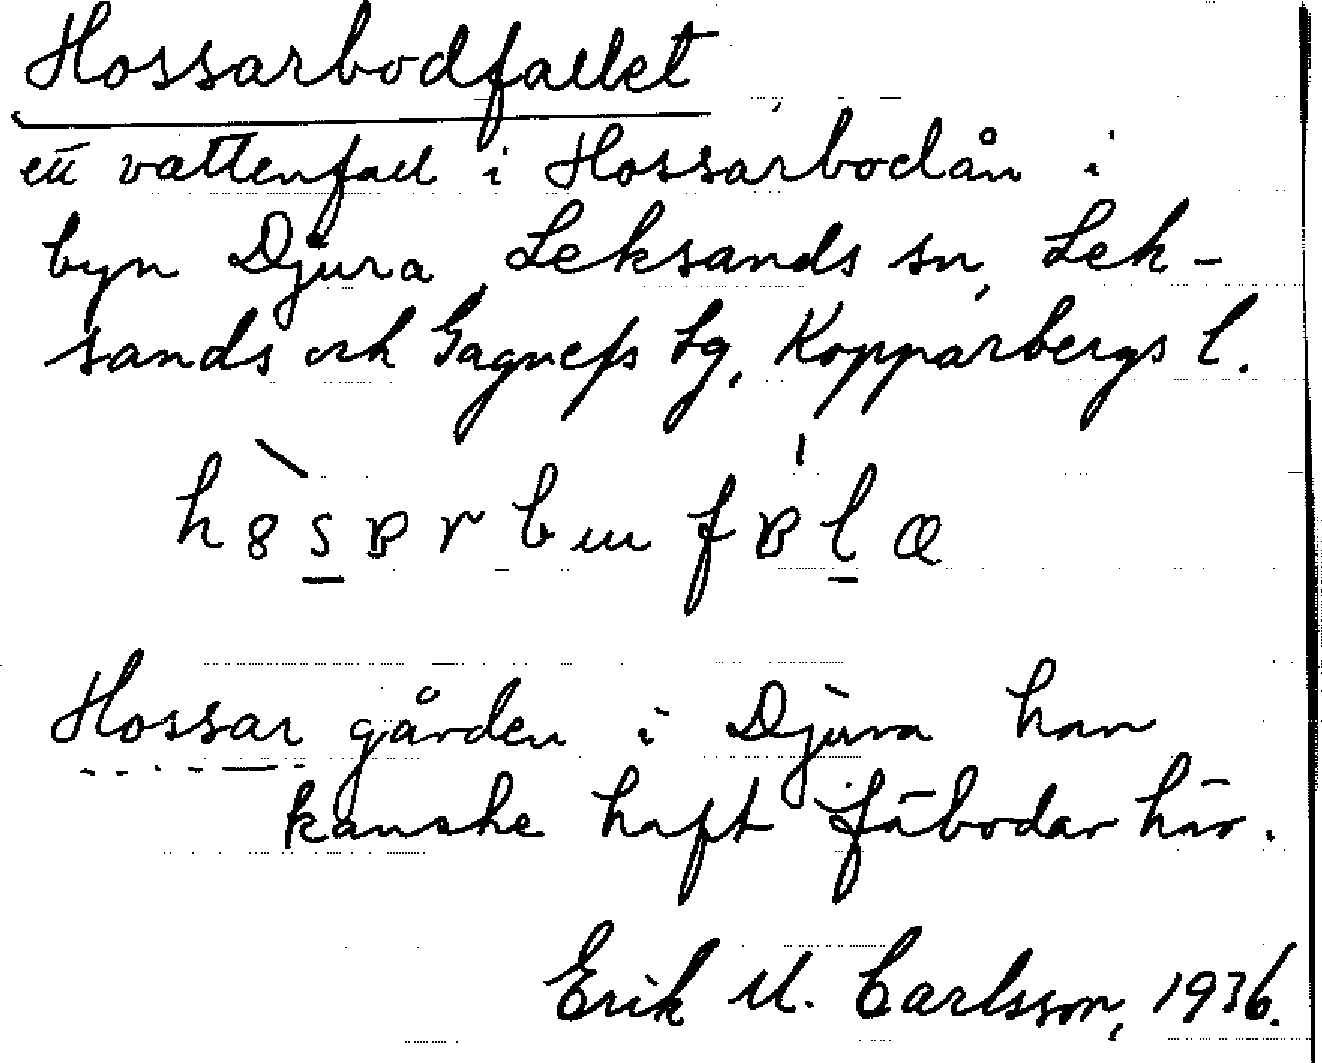 Hossarbodfallet
ett vattenfall i Hossarbodån i
byn Djura, Leksands sn, Lek-
sands och Gagnefs tg, Kopparbergs l.
Hossargården i Djura har
kanske haft fäbodar här.
Erik M. Carlsson, 1936.